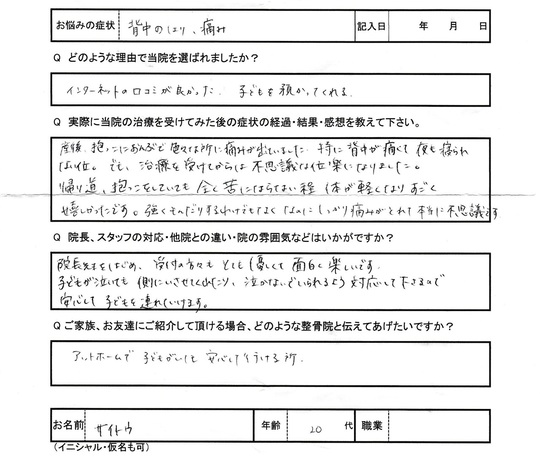 お悩みの症状 背中のはり、痛み 記入日 年 月 日
Q どのような理由で当院を選ばれましたか？
インターネットの口コミが良かった. 子どもを預かってくれる.
Q 実際に当院の治療を受けてみた後の症状の経過・結果・感想を教えて下さい。
産後、抱っこにおんぶと色々な所に痛みが出ていました. 特に背中が痛くて夜も寝られ
ない位。でも、治療を受けてからは不思議な位楽になりました。
帰り道、抱っこをしていても全く苦にならない程 体が軽くなりすごく
嬉しかったです。強くもんだりするわけでもなく なのにしっかり痛みがとれて本当に不思議です
Q 院長、スタッフの対応・他院との違い・院の雰囲気などはいかがですか？
院長先生をはじめ、受付の方々もとても優しくて面白く楽しいです.
子どもが泣いても側にいさせてくれたり、泣かないでいられるよう対応して下さるので
安心して子どもを連れていけます。
Q ご家族、お友達にご紹介して頂ける場合、どのような整骨院と伝えてあげたいですか？
アットホームで子どもがいても安心して行ける所.
お名前 サイトウ 年齢 20 代 職業
(イニシャル・仮名も可)